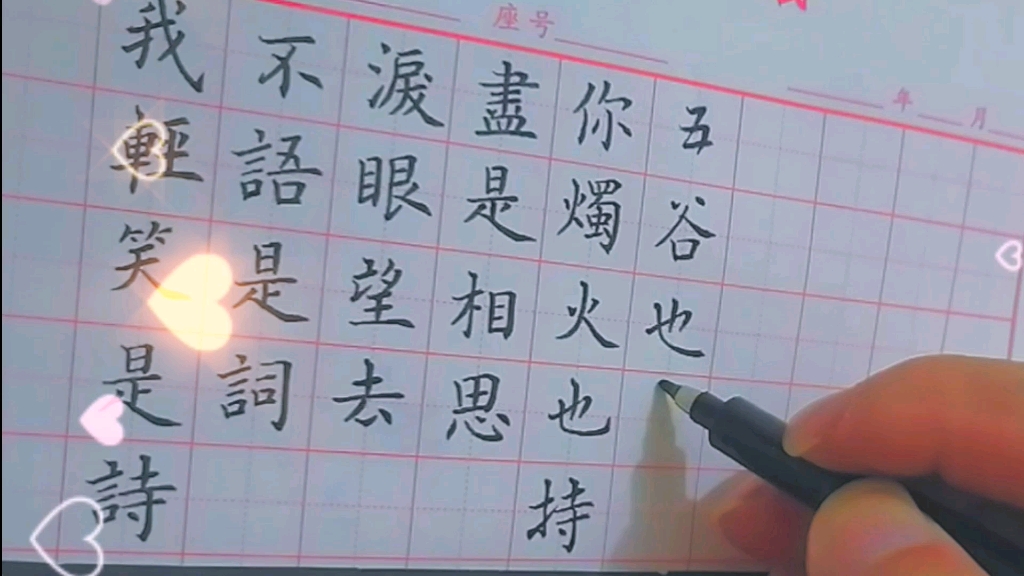 座号
年 月
我輕笑是詩
不語是詞
淚眼望去
盡是相思
你燭火也持
五谷也